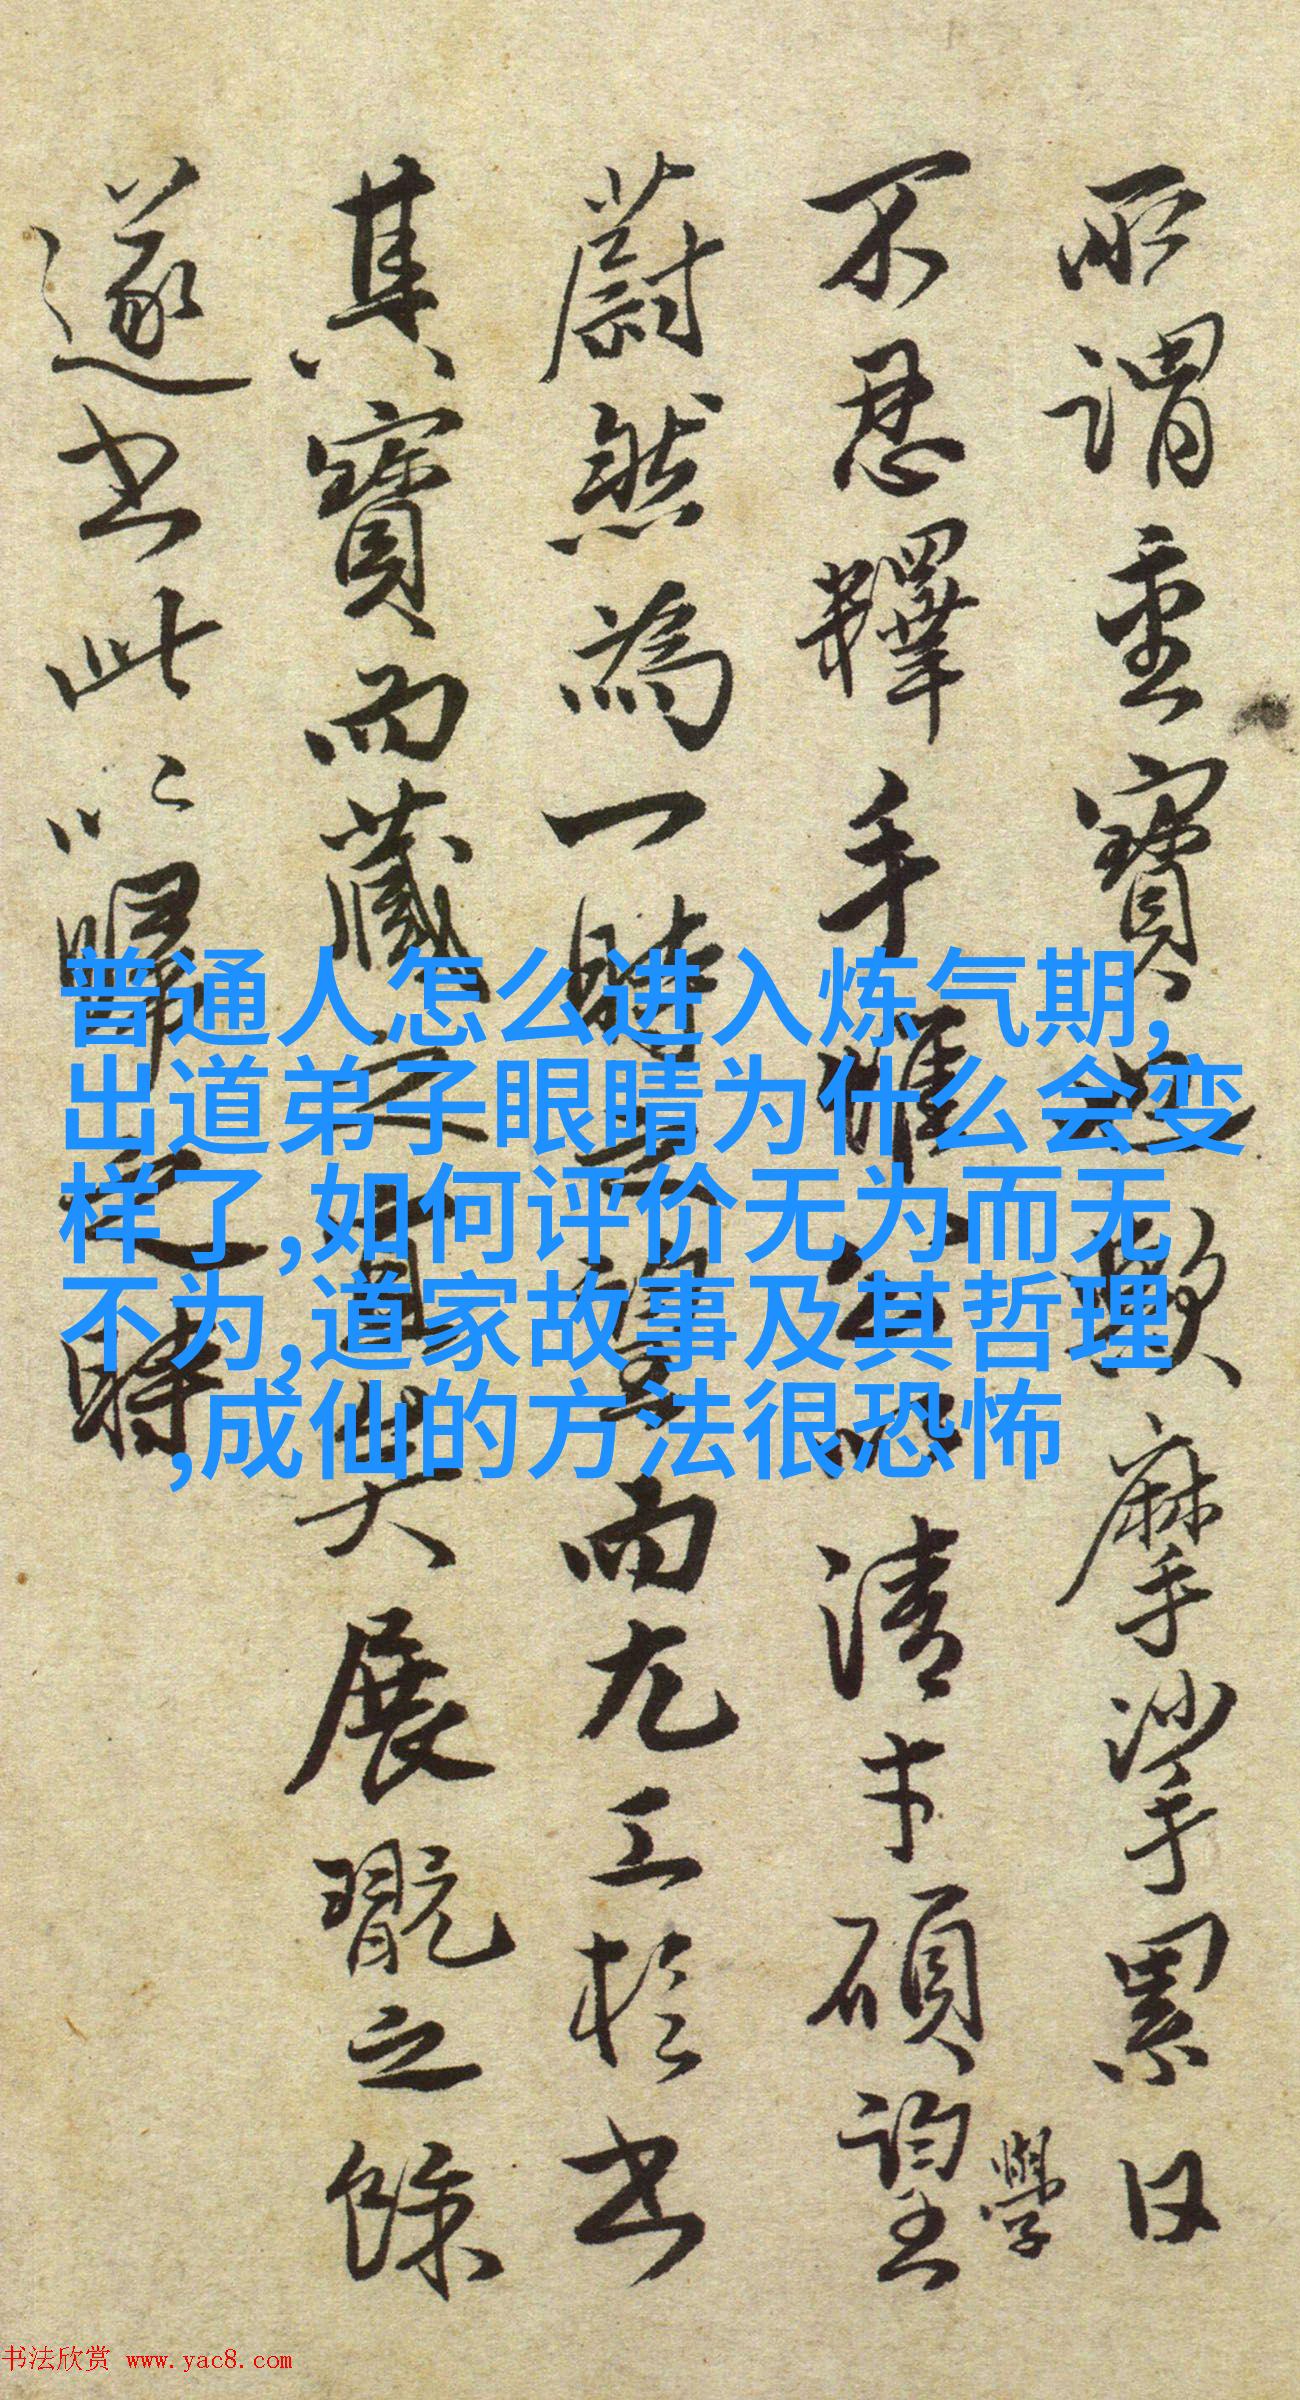 所謂重寶也歟摩挲累日
不忍釋手惟公以清才碩望
學
蔚然為一時之望而尤工於書
其寶而藏之宜矣展翫之餘
遂書此以歸之時
普通人怎么进入炼气期,
出道弟子眼睛为什么会变
样了,如何评价无为而无
不为,道家故事及其哲理
,成仙的方法很恐怖
书法欣赏 www.yac8.com